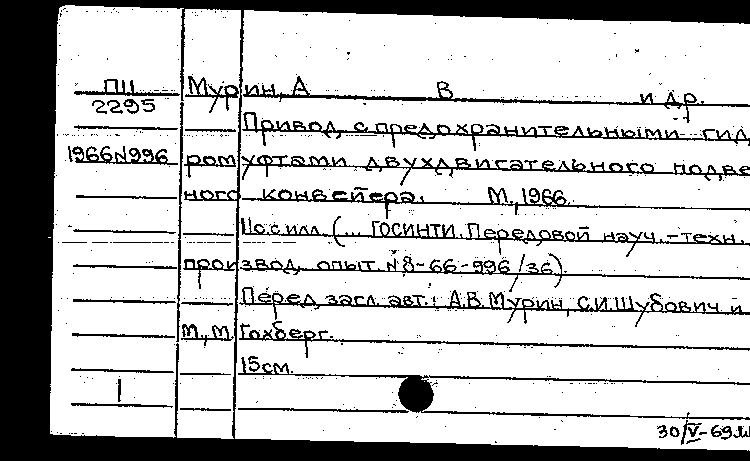 ПII Мурин, А В и др.
2295
Привод с предохранительными гид
1966N996 ромуфтами двухдвигательного подве
ного конвейера. М., 1966.
11с. с илл. (... ГОСИНТИ. Передовой науч.-техн.
производ. опыт. N8-66-996/36)
Перед загл. авт.: А.В. Мурин, С.И. Шубович и
М.М. Гохберг.
15см.
1
30/V-69